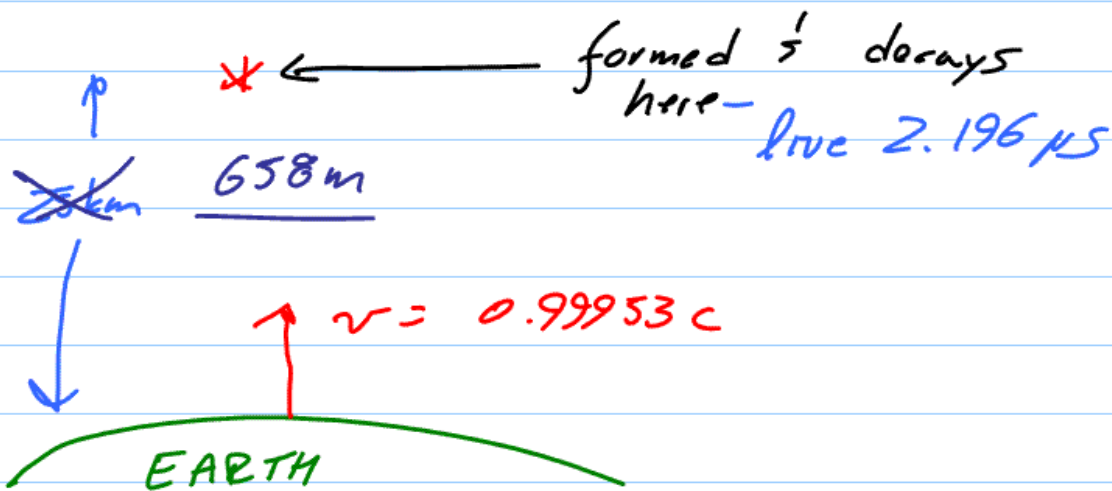 formed & decays
here - live 2.196 μs
658m
v = 0.99953 c
EARTH